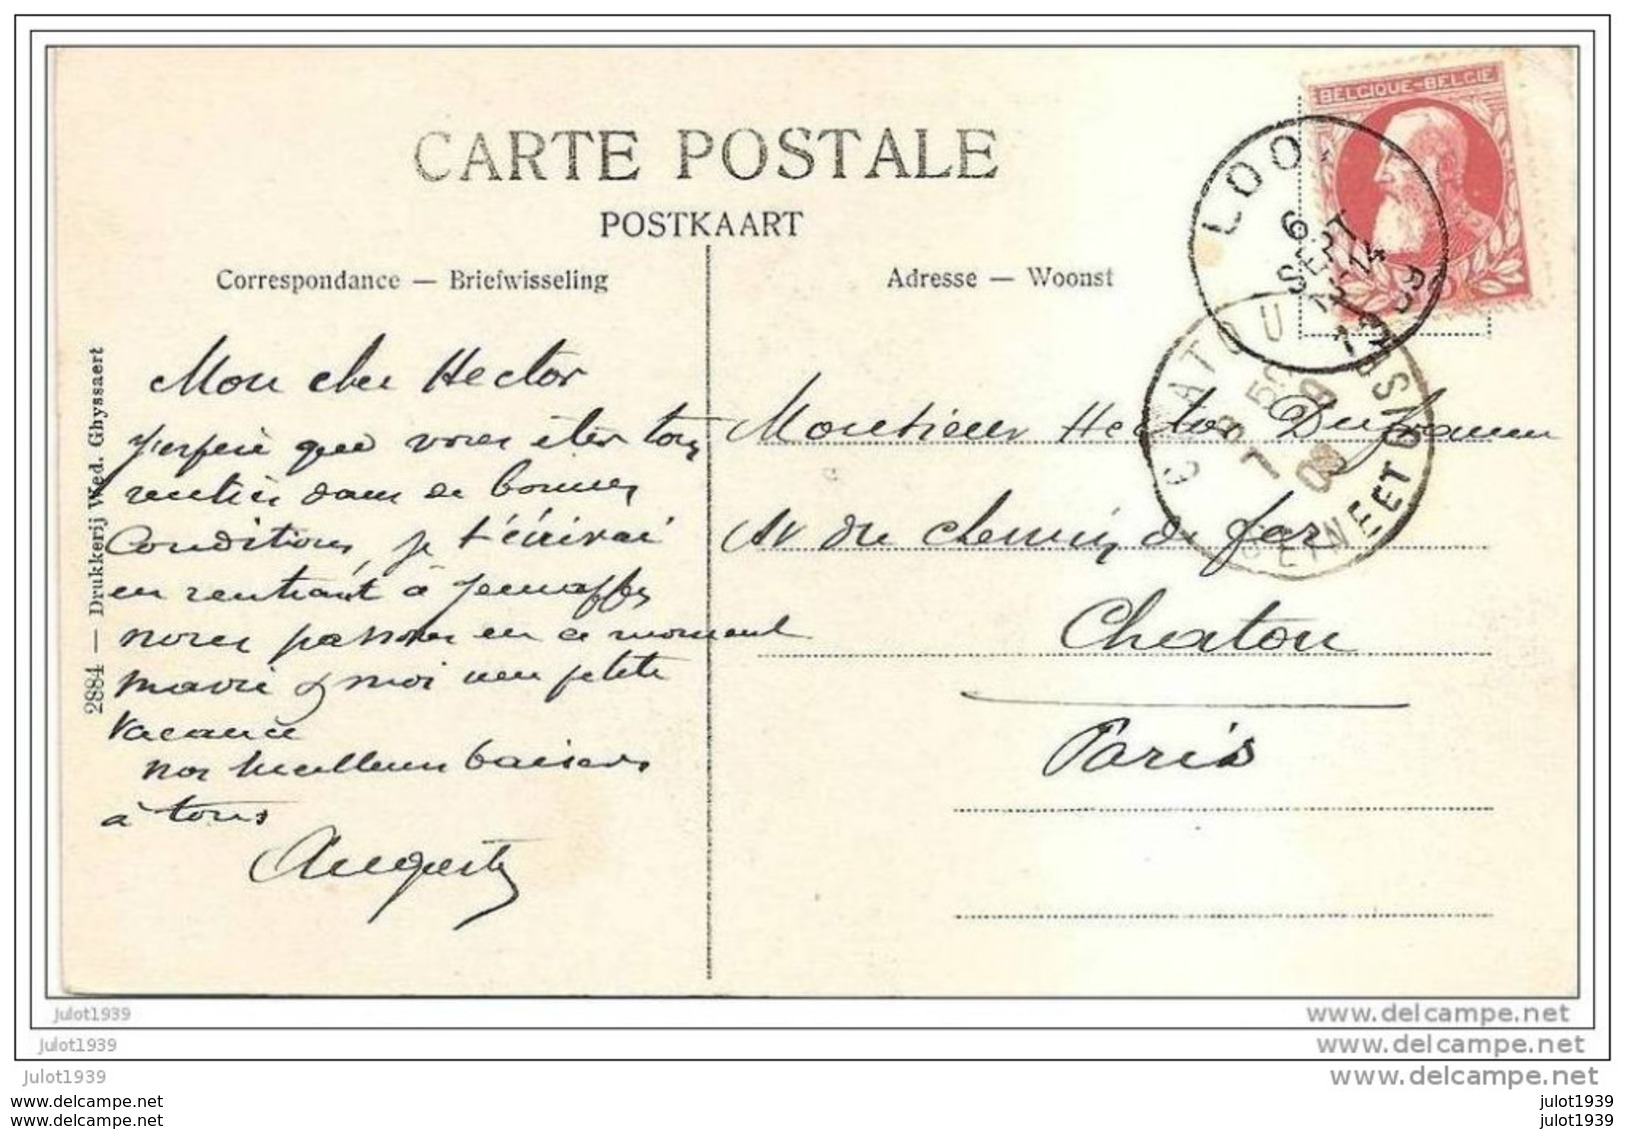 CARTE POSTALE
POSTKAART
Correspondance — Briefwisseling
Mon cher Hector
J'espère que vous êtes tous
rentrés dans de bonnes
conditions, je t'écrirai
en rentrant à Jemappes
nous passons en ce moment
Marie & moi une petite
vacance
nos meilleurs baisers
à tous
Auguste
2884 — Drukkerij Wed. Ghyssaert
Adresse — Woonst
BELGIQUE-BELGIE
LOO
6
SEPT
1909
CHATOU
7 9
09
SEINE ET OISE
Monsieur Hector
Av du chemin de fer
Chatou
Paris
julot1939
julot1939
julot1939
www.delcampe.net
www.delcampe.net
www.delcampe.net
www.delcampe.net
www.delcampe.net
julot1939
julot1939